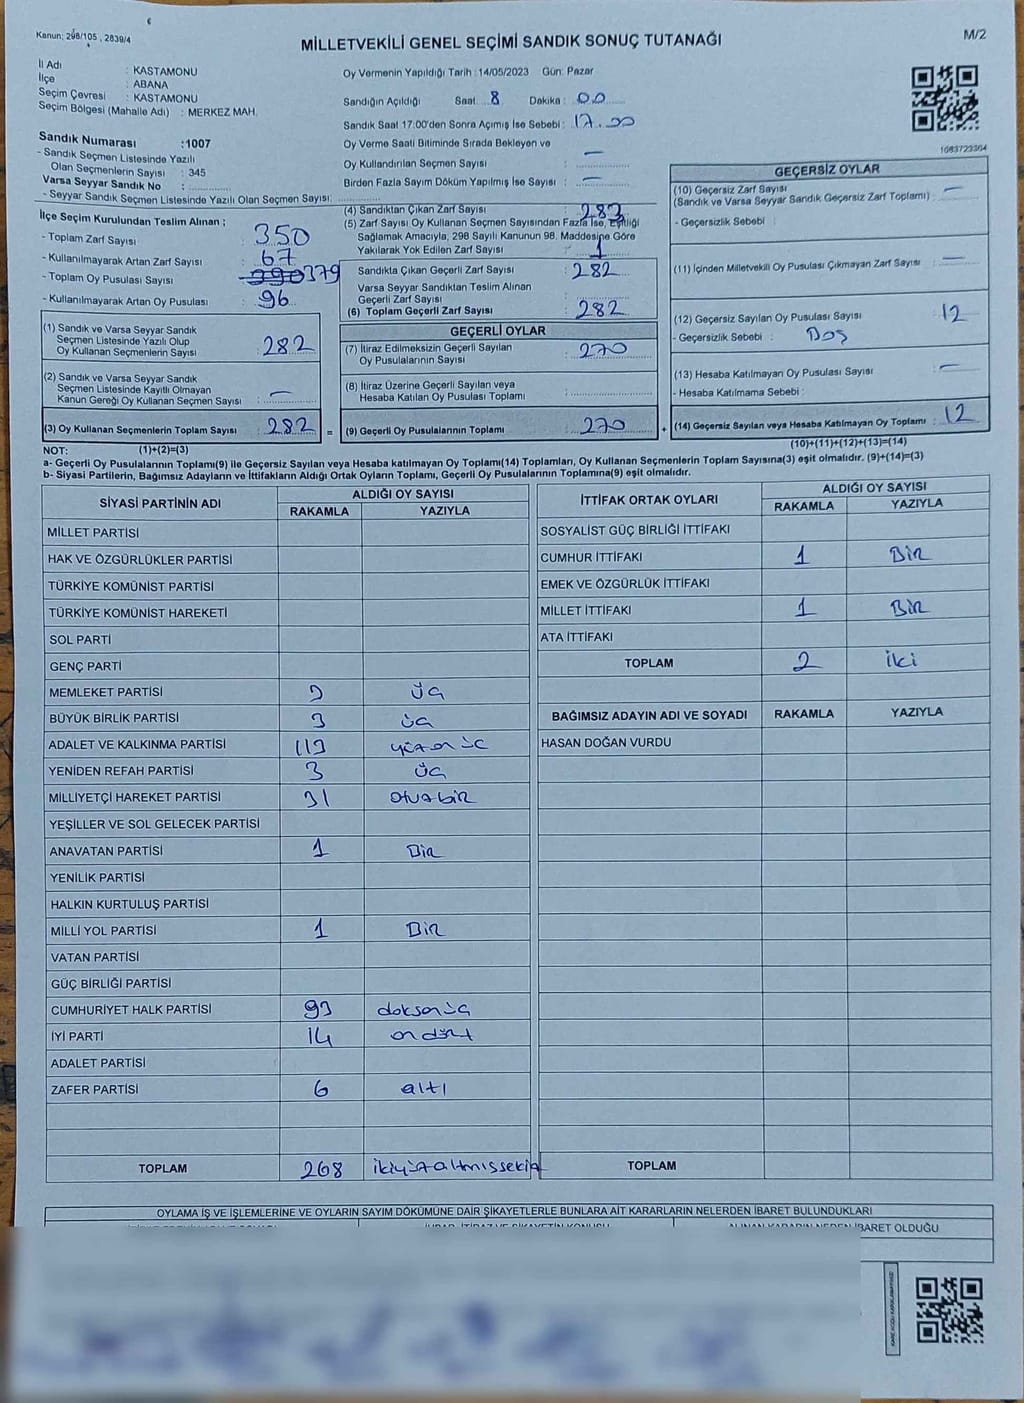 Kanun; 298/105, 2839/4
MİLLETVEKİLİ GENEL SEÇİMİ SANDIK SONUÇ TUTANAĞI
M/2
İl Adı : KASTAMONU
İlçe : ABANA
Seçim Çevresi : KASTAMONU
Seçim Bölgesi (Mahalle Adı) : MERKEZ MAH.
Oy Vermenin Yapıldığı Tarih :14/05/2023 Gün: Pazar
Sandığın Açıldığı Saat 8 Dakika : 00
Sandık Saat 17:00'den Sonra Açımış İse Sebebi : 17.00
Oy Verme Saati Bitiminde Sırada Bekleyen ve
Oy Kullandırılan Seçmen Sayısı : —
Birden Fazla Sayım Döküm Yapılmış İse Sayısı : —
1083723304
Sandık Numarası :1007
- Sandık Seçmen Listesinde Yazılı
Olan Seçmenlerin Sayısı : 345
Varsa Seyyar Sandık No :
- Seyyar Sandık Seçmen Listesinde Yazılı Olan Seçmen Sayısı:
İlçe Seçim Kurulundan Teslim Alınan ;
- Toplam Zarf Sayısı : 350
- Kullanılmayarak Artan Zarf Sayısı : 67
- Toplam Oy Pusulası Sayısı : 379
- Kullanılmayarak Artan Oy Pusulası : 96
(1) Sandık ve Varsa Seyyar Sandık
Seçmen Listesinde Yazılı Olup
Oy Kullanan Seçmenlerin Sayısı : 282
(2) Sandık ve Varsa Seyyar Sandık
Seçmen Listesinde Kayıtlı Olmayan
Kanun Gereği Oy Kullanan Seçmen Sayısı : —
(3) Oy Kullanan Seçmenlerin Toplam Sayısı : 282 =
(4) Sandıktan Çıkan Zarf Sayısı : 283
(5) Zarf Sayısı Oy Kullanan Seçmen Sayısından Fazla İse, Eşitliği
Sağlamak Amacıyla, 298 Sayılı Kanunun 98. Maddesine Göre
Yakılarak Yok Edilen Zarf Sayısı : 1
Sandıkta Çıkan Geçerli Zarf Sayısı : 282
Varsa Seyyar Sandıktan Teslim Alınan
Geçerli Zarf Sayısı :
(6) Toplam Geçerli Zarf Sayısı : 282
GEÇERLİ OYLAR
(7) İtiraz Edilmeksizin Geçerli Sayılan
Oy Pusulalarının Sayısı : 270
(8) İtiraz Üzerine Geçerli Sayılan veya
Hesaba Katılan Oy Pusulası Toplamı :
(9) Geçerli Oy Pusulalarının Toplamı : 270 +
GEÇERSİZ OYLAR
(10) Geçersiz Zarf Sayısı
(Sandık ve Varsa Seyyar Sandık Geçersiz Zarf Toplamı) : —
- Geçersizlik Sebebi :
(11) İçinden Milletvekili Oy Pusulası Çıkmayan Zarf Sayısı : —
(12) Geçersiz Sayılan Oy Pusulası Sayısı : 12
- Geçersizlik Sebebi : Boş
(13) Hesaba Katılmayan Oy Pusulası Sayısı : —
- Hesaba Katılmama Sebebi :
(14) Geçersiz Sayılan veya Hesaba Katılmayan Oy Toplamı : 12
(10)+(11)+(12)+(13)=(14)
NOT: (1)+(2)=(3)
a- Geçerli Oy Pusulalarının Toplamı(9) ile Geçersiz Sayılan veya Hesaba katılmayan Oy Toplamı(14) Toplamları, Oy Kullanan Seçmenlerin Toplam Sayısına(3) eşit olmalıdır. (9)+(14)=(3)
b- Siyasi Partilerin, Bağımsız Adayların ve İttifakların Aldığı Ortak Oyların Toplamı, Geçerli Oy Pusulalarının Toplamına(9) eşit olmalıdır.
SİYASİ PARTİNİN ADI ALDIĞI OY SAYISI
RAKAMLA YAZIYLA
MİLLET PARTİSİ
HAK VE ÖZGÜRLÜKLER PARTİSİ
TÜRKİYE KOMÜNİST PARTİSİ
TÜRKİYE KOMÜNİST HAREKETİ
SOL PARTİ
GENÇ PARTİ
MEMLEKET PARTİSİ 3 üç
BÜYÜK BİRLİK PARTİSİ 3 üç
ADALET VE KALKINMA PARTİSİ 113 yüzonüç
YENİDEN REFAH PARTİSİ 3 üç
MİLLİYETÇİ HAREKET PARTİSİ 31 otuzbir
YEŞİLLER VE SOL GELECEK PARTİSİ
ANAVATAN PARTİSİ 1 Bir
YENİLİK PARTİSİ
HALKIN KURTULUŞ PARTİSİ
MİLLİ YOL PARTİSİ 1 Bir
VATAN PARTİSİ
GÜÇ BİRLİĞİ PARTİSİ
CUMHURİYET HALK PARTİSİ 93 doksanüç
İYİ PARTİ 14 on dört
ADALET PARTİSİ
ZAFER PARTİSİ 6 altı
TOPLAM 268 ikiyüzaltmışsekiz
İTTİFAK ORTAK OYLARI ALDIĞI OY SAYISI
RAKAMLA YAZIYLA
SOSYALİST GÜÇ BİRLİĞİ İTTİFAKI
CUMHUR İTTİFAKI 1 Bir
EMEK VE ÖZGÜRLÜK İTTİFAKI
MİLLET İTTİFAKI 1 Bir
ATA İTTİFAKI
TOPLAM 2 iki
BAĞIMSIZ ADAYIN ADI VE SOYADI RAKAMLA YAZIYLA
HASAN DOĞAN VURDU
TOPLAM
OYLAMA İŞ VE İŞLEMLERİNE VE OYLARIN SAYIM DÖKÜMÜNE DAİR ŞİKAYETLERLE BUNLARA AİT KARARLARIN NELERDEN İBARET BULUNDUKLARI
ALINAN KARARIN NEDEN İBARET OLDUĞU